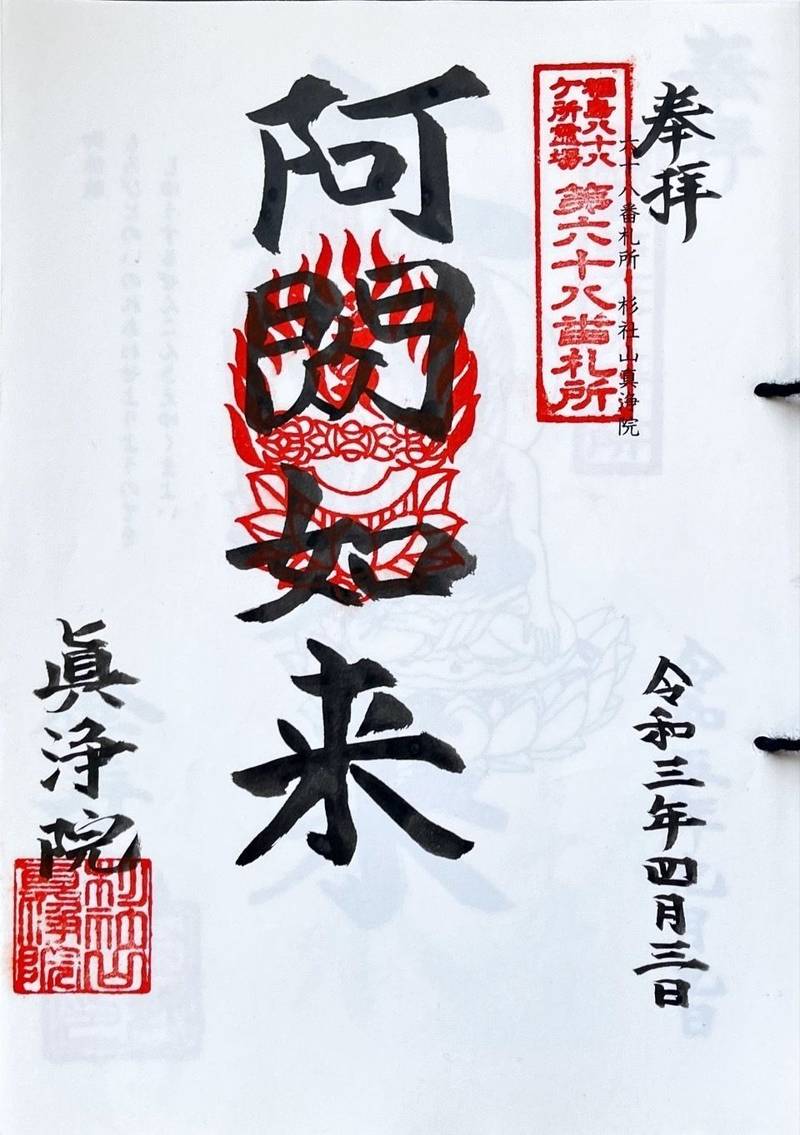 奉拝
令和三年四月三日
六十八番札所 杉社山真浄院
福島八十八
ケ所霊場
第六十八番札所
阿閦如来
眞浄院
杉社山
真浄院